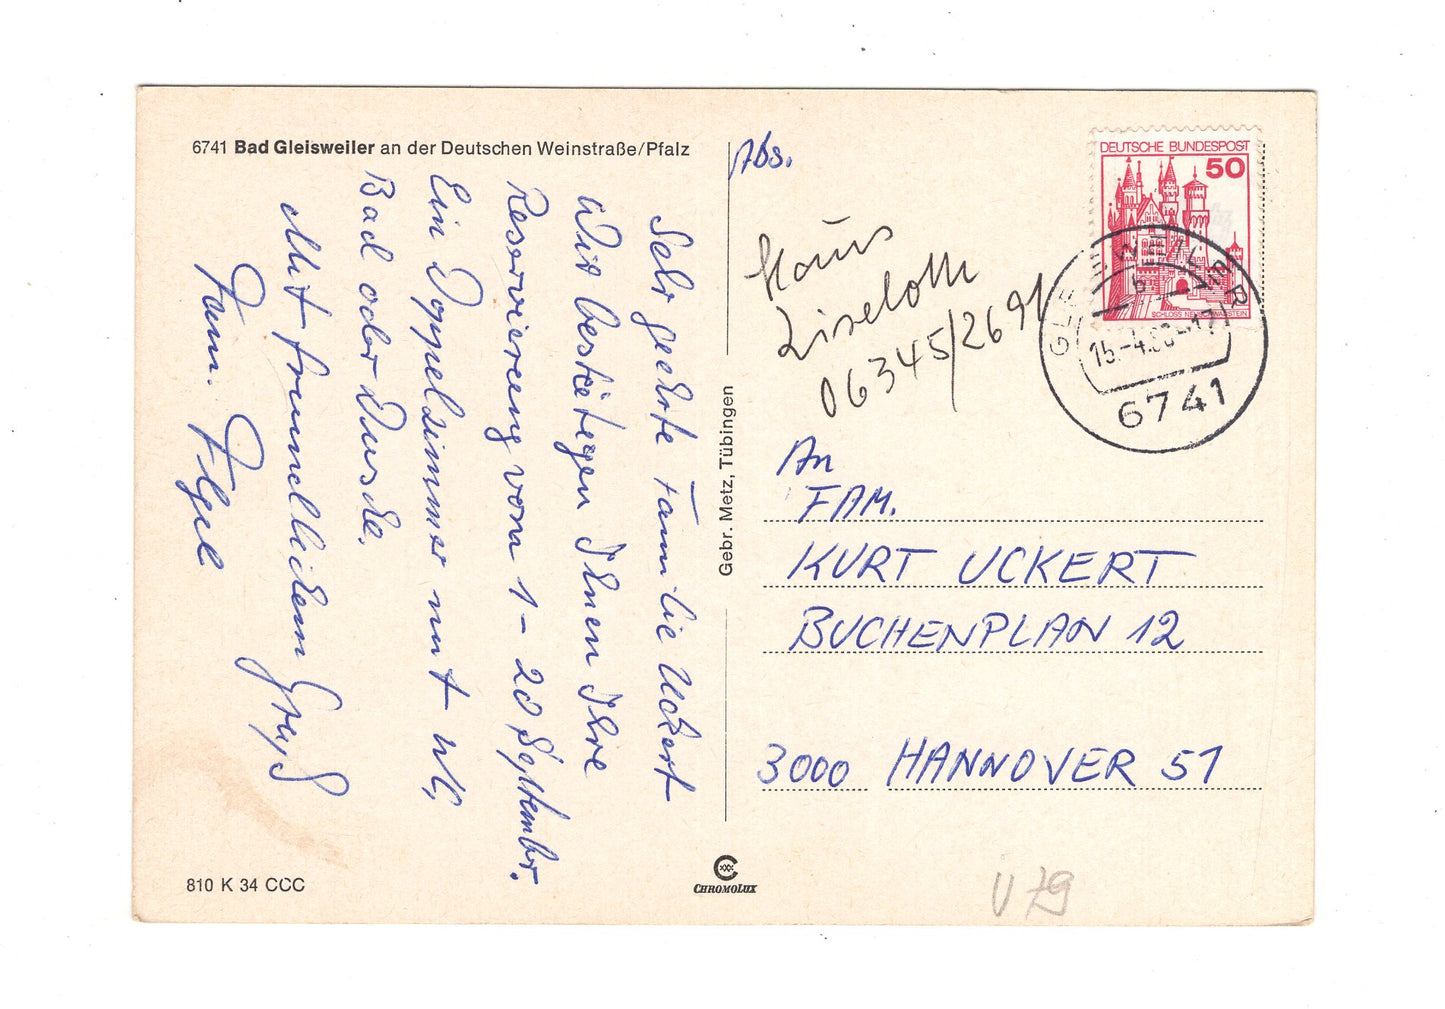 6741 Bad Gleisweiler an der Deutschen Weinstraße/Pfalz
Sehr geehrte Familie Uckert
Wir bestätigen Ihnen Ihre
Reservierung vom 1 - 20 September.
Ein Doppelzimmer mit
Bad oder Dusche.
Mit freundlichem Gruß
Fam.
810 K 34 CCC
Gebr. Metz, Tübingen
CHROMOLUX
Abs.
Haus
Liselotte
06345/2691
DEUTSCHE BUNDESPOST
50
SCHLOSS NEUSCHWANSTEIN
GLEISWEILER
b
6741
An
FAM.
KURT UCKERT
BUCHENPLAN 12
3000 HANNOVER 51
V 79